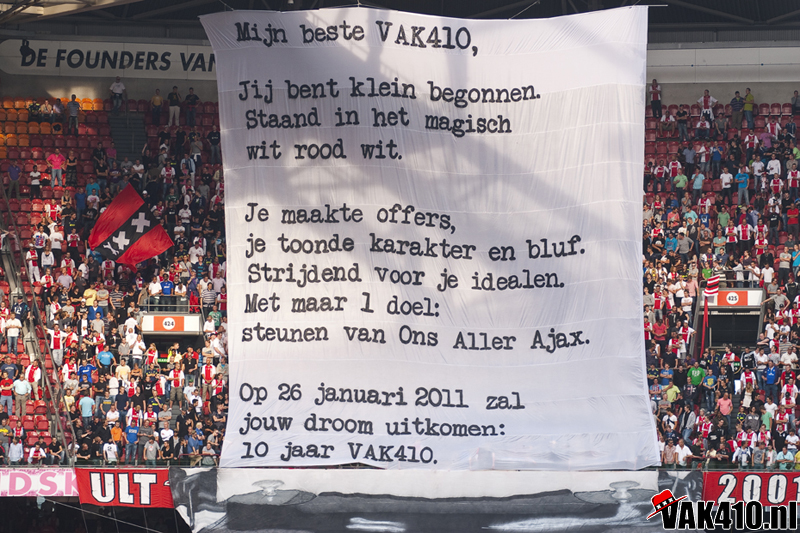 DE FOUNDERS VAN
Mijn beste VAK410,
Jij bent klein begonnen.
Staand in het magisch
wit rood wit.
Je maakte offers,
je toonde karakter en bluf.
Strijdend voor je idealen.
Met maar 1 doel:
steunen van Ons Aller Ajax.
Op 26 januari 2011 zal
jouw droom uitkomen:
10 jaar VAK410.
424
425
DSK
ULT
2001
VAK410.nl